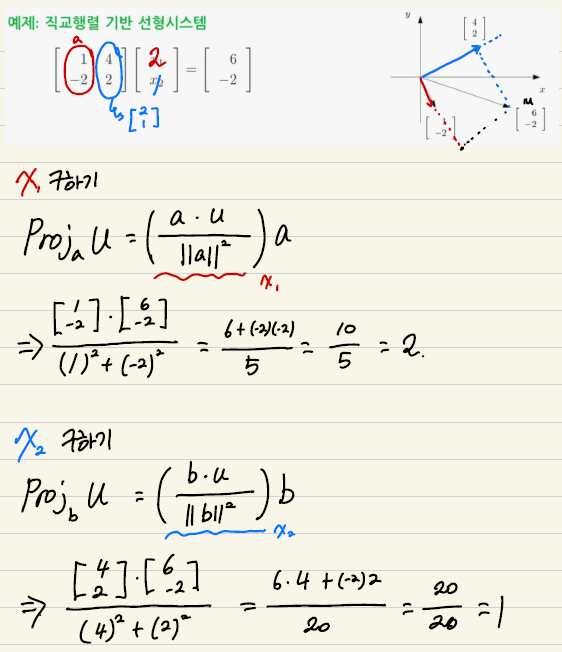 예제: 직교행렬 기반 선형시스템
a
[1 -2] [4 2] [2 1] = [6 -2]
b [2 1]
y
[4 2]
x
u
[1 -2]
[6 -2]
x₁ 구하기
Proj_a u = (a · u / ||a||²) a
x₁
⇒ [1 -2] · [6 -2] / (1)² + (-2)² = 6 + (-2)(-2) / 5 = 10 / 5 = 2.
x₂ 구하기
Proj_b u = (b · u / ||b||²) b
x₂
⇒ [4 2] · [6 -2] / (4)² + (2)² = 6 · 4 + (-2)2 / 20 = 20 / 20 = 1